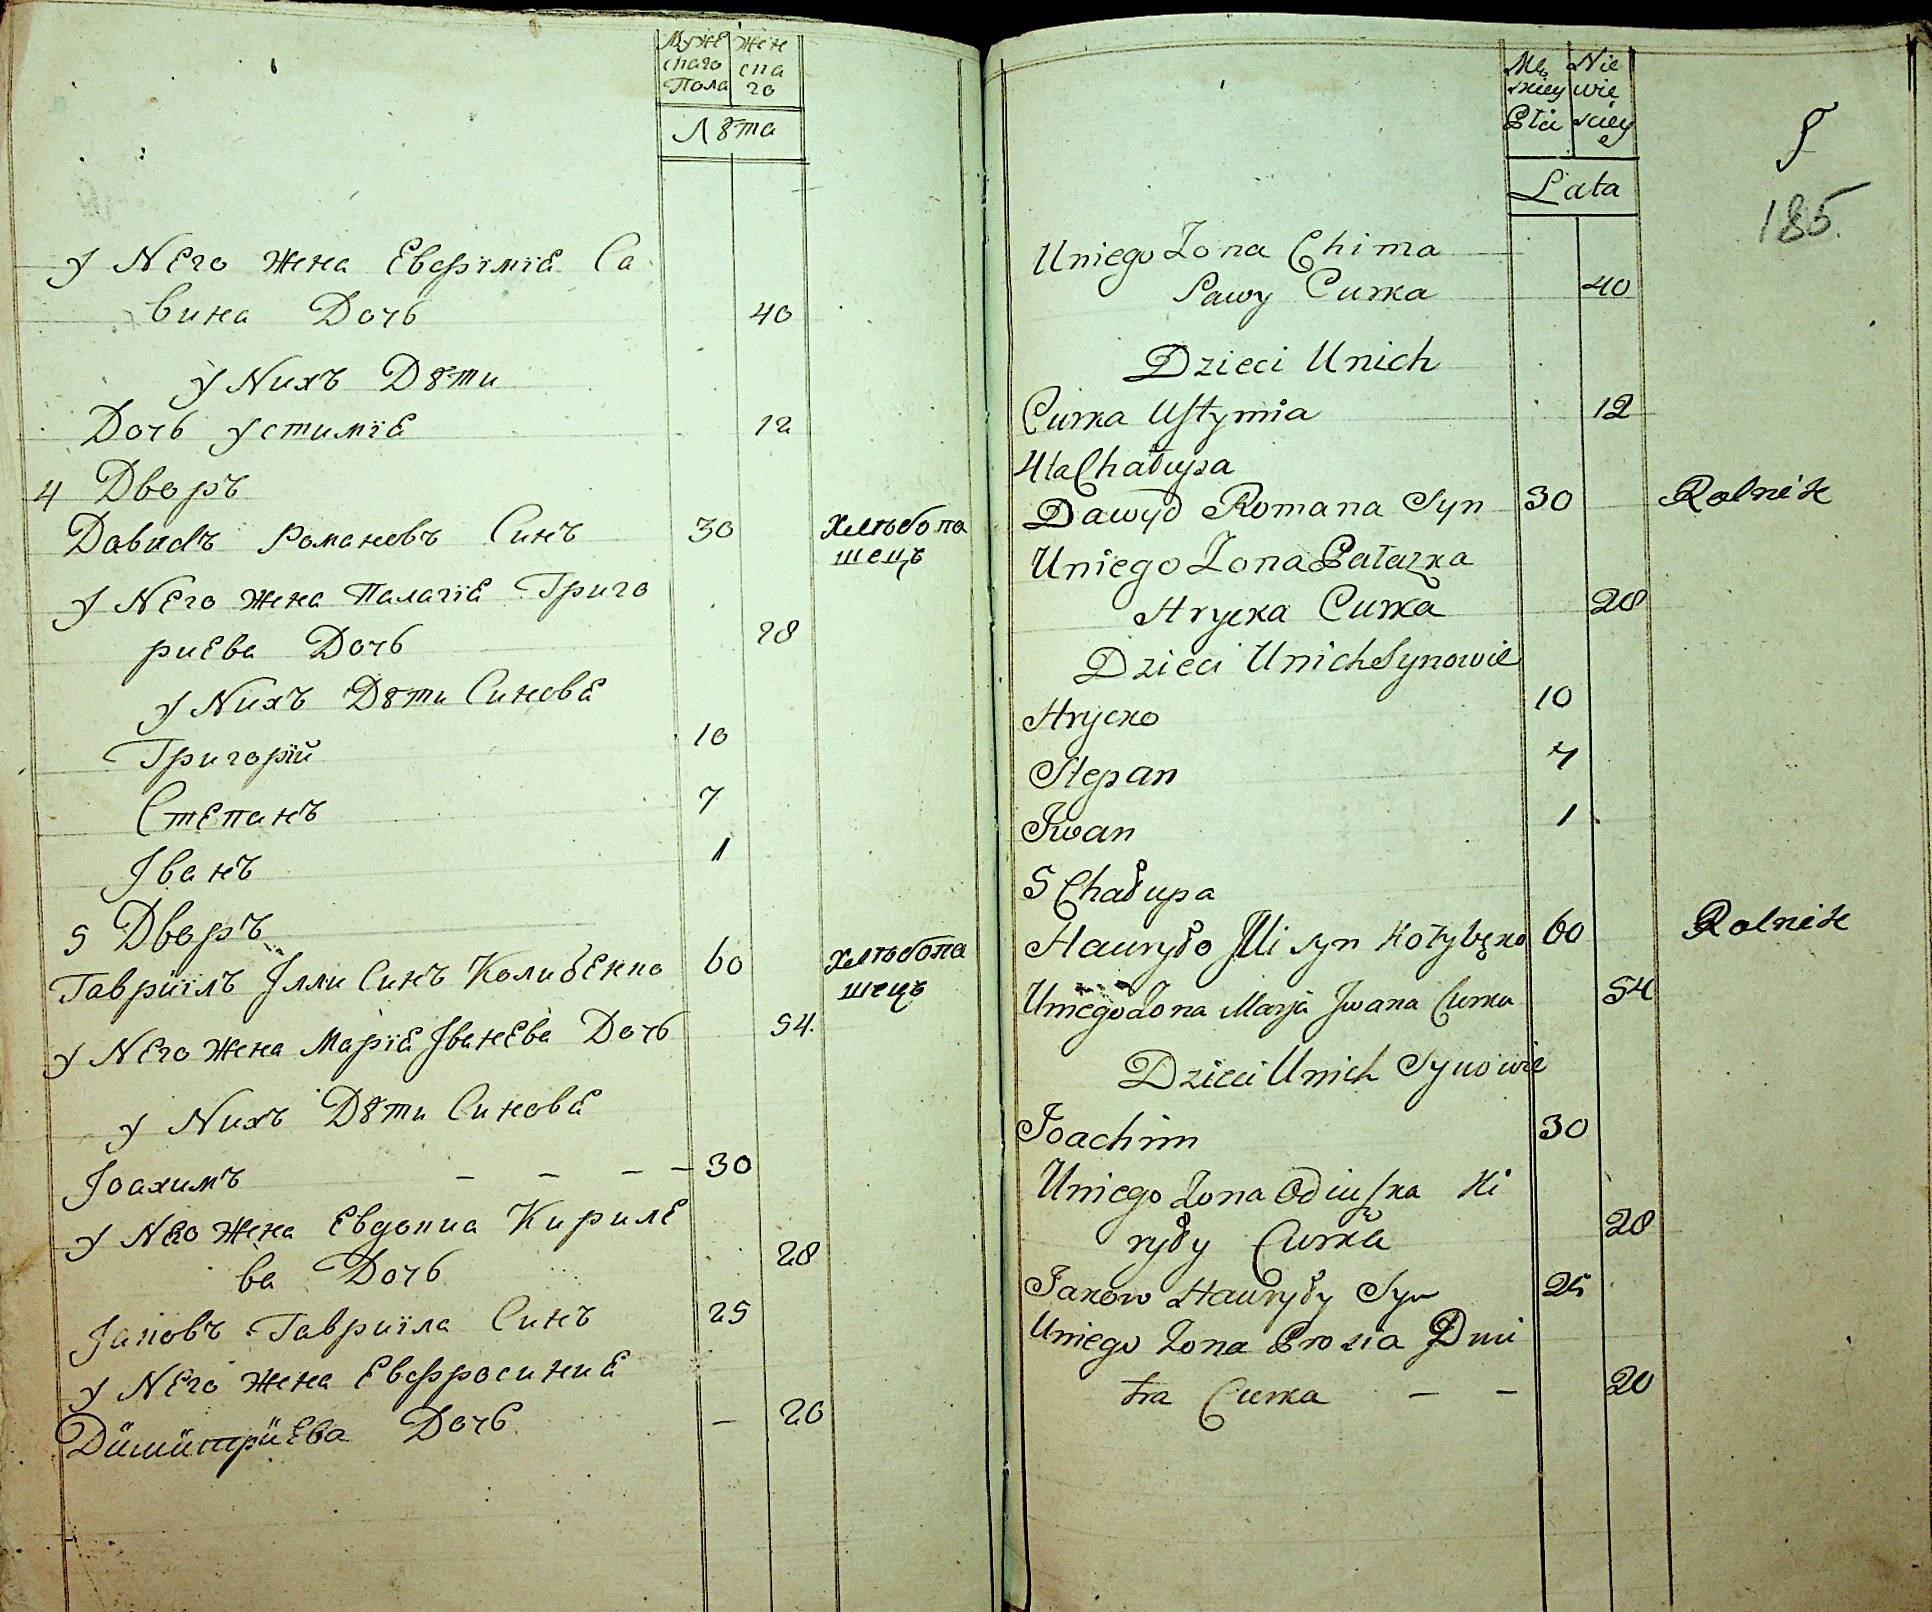 Муже
скаго
Пола
Жен
ска
го
Лѣта
У Него Жена Евфимїя Са
вина Дочь 40
У Нихъ Дѣти
Дочь Устимїя 12
4 Дворъ
Давидъ Романовъ Синъ 30 Хлѣбопа
шецъ
У Него жена Палагїя Григо
риева Дочь 28
У Нихъ Дѣти Синовя
Григорїй 10
Степанъ 7
Іванъ 1
5 Дворъ
Гавриїлъ Илли Синъ Колибенко 60 Хлѣбопа
шецъ
У Него жена Марїя Іванева Дочь 54
У Нихъ Дѣти Синовя
Іоахимъ — — — — 30
У Него Жена Евдокиа Кириле
ва Дочь 28
Іаковъ Гавриїла Синъ 25
У Него Жена Евфросиния
Димитриева Дочь — 20
Mę
skiey
Płci
Nie
wie
sciey
Lata
5
185.
Uniego Zona Chima
Sawy Curka 40
Dzieci Unich
Curka Ustymia 12
4ta Chałupa
Dawyd Romana Syn 30 Rolnik
Uniego Zona Pałazka
Hrycka Curka 28
Dzieci Unich Synowie
Hrycko 10
Stepan 7
Iwan 1
5 Chałupa
Hauryło Illi syn Kołybęko 60 Rolnik
Uniego Zona Marja Iwana Curka 54
Dzieci Unich Synowie
Joachim 30
Uniego Zona Odiuska Ki
ryły Curka 28
Jakow Hauryły Syn 25
Uniego Zona Prosia Dmi
tra Curka — — 20